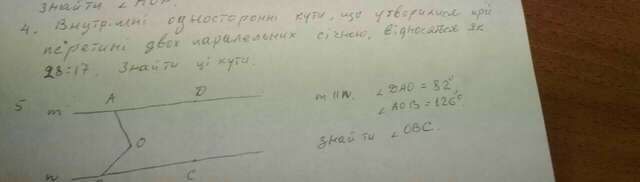 знайти ∠AOK.
4. Внутрішні односторонні кути, що утворилися при
перетині двох паралельних січною, відносяться як
23:17. Знайти ці кути.
5 A D m∥n. ∠DAO = 82°,
m ∠AOB = 126°
O знайти ∠OBC.
n C